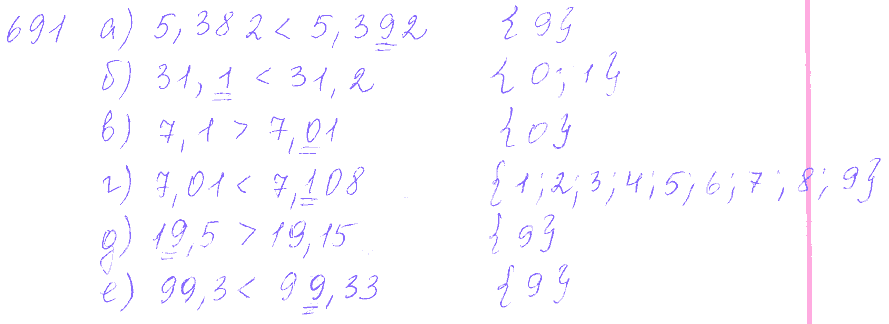 691 а) 5,382 < 5,392 {9}
б) 31,1 < 31,2 {0; 1}
в) 7,1 > 7,01 {0}
г) 7,01 < 7,108 {1; 2; 3; 4; 5; 6; 7; 8; 9}
д) 19,5 > 19,15 {9}
е) 99,3 < 99,33 {9}